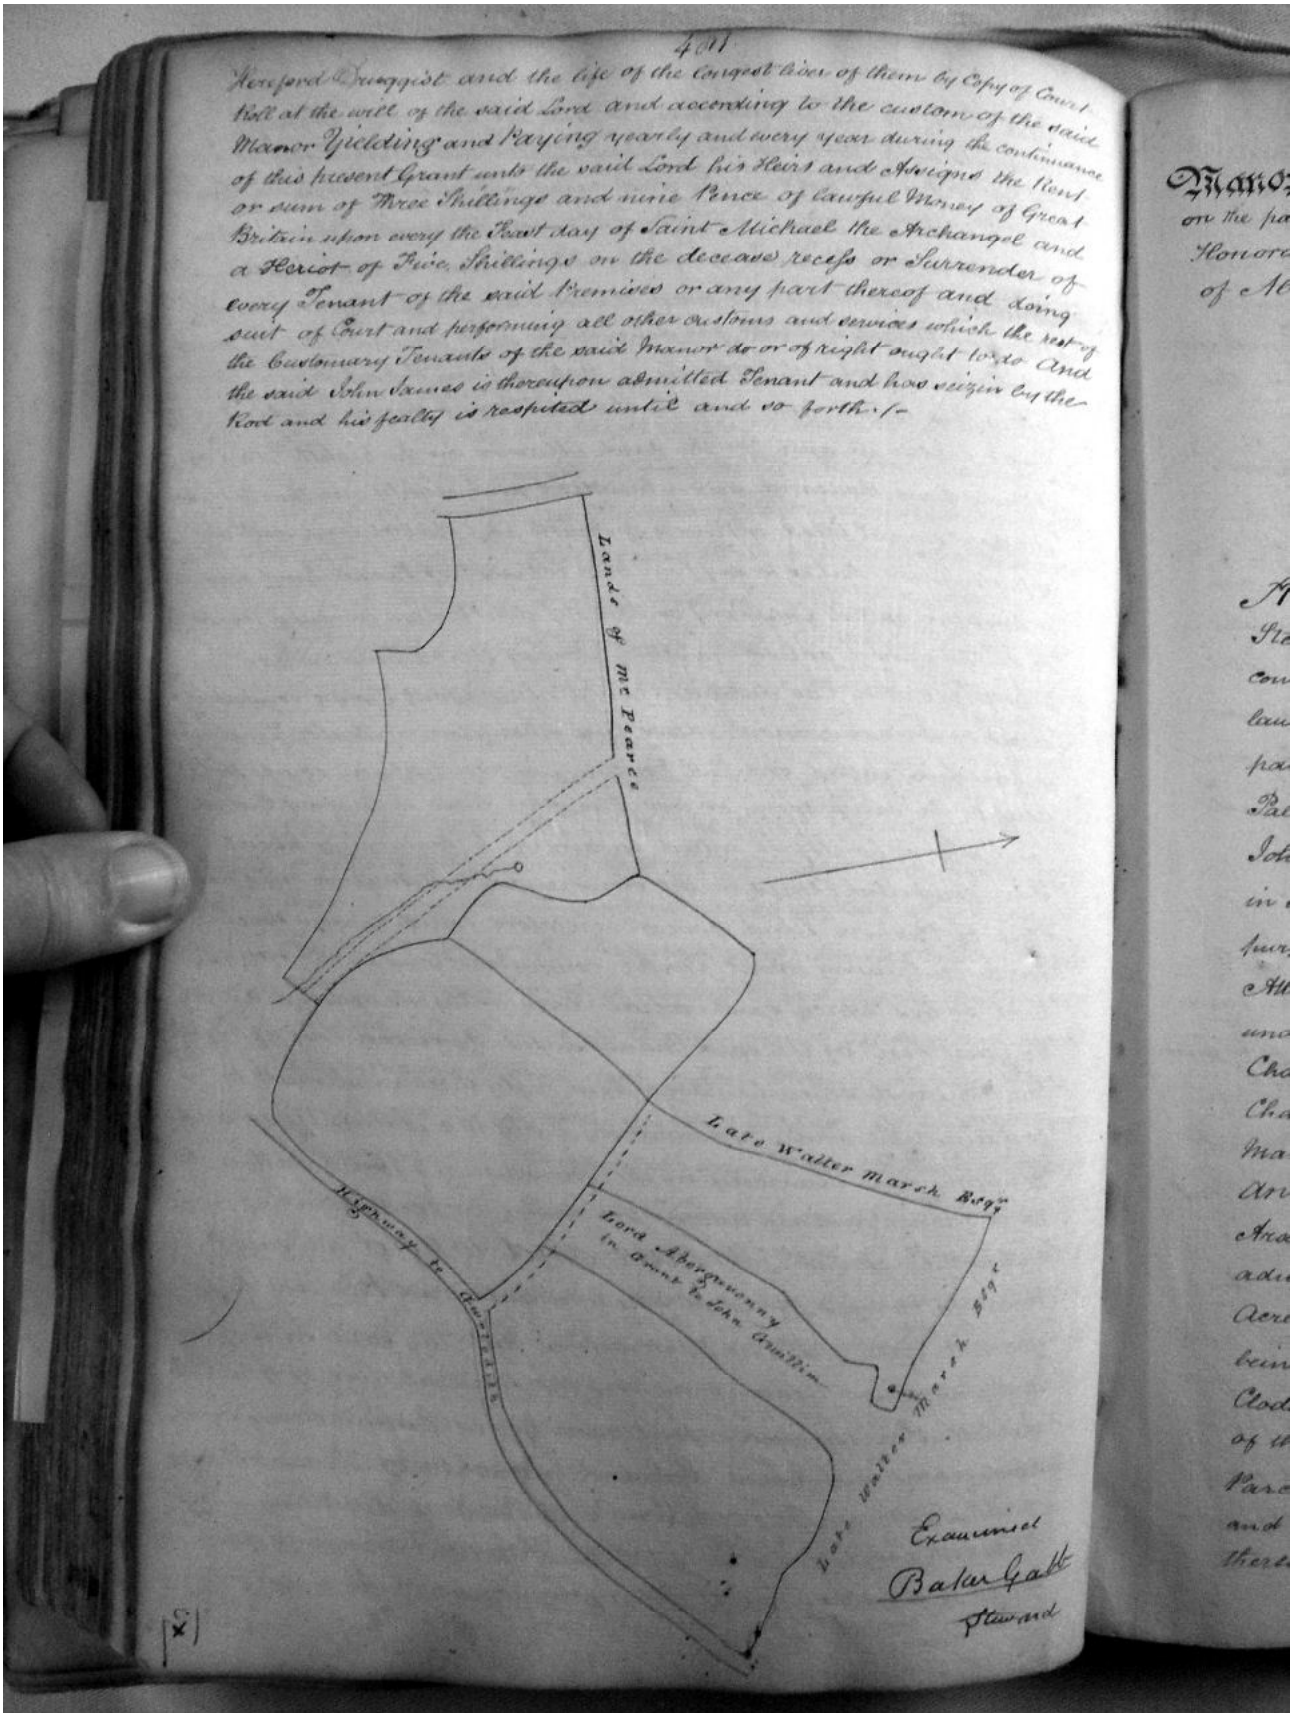 Hereford Druggist and the life of the longest liver of them by Copy of Court
Roll at the will of the said Lord and according to the custom of the said
Manor Yielding and Paying yearly and every year during the continuance
of this present Grant unto the said Lord his Heirs and Assigns the Rent
or sum of Three Shillings and nine Pence of lawful Money of Great
Britain upon every the Feast day of Saint Michael the Archangel and
a Heriot of Five Shillings on the decease recess or Surrender of
every Tenant of the said Premises or any part thereof and doing
suit of Court and performing all other customs and services which the rest of
the Customary Tenants of the said Manor do or of right ought to do And
the said John James is thereupon admitted Tenant and has seizin by the
Rod and his fealty is respited until and so forth ./-
Lands of Mr. Pearce
Late Walter Marsh Esqr
Lord Abergavenny
in Grant to John
Highway to
Late Walter Marsh Esqr
Examined
Baker Gabb
Steward
Manor
on the pa
Honora
of
Ste
com
law
pa
Pal
Joh
in
purs
und
Cha
Cha
Ma
An
adm
Acre
bein
Clod
of th
Parc
and